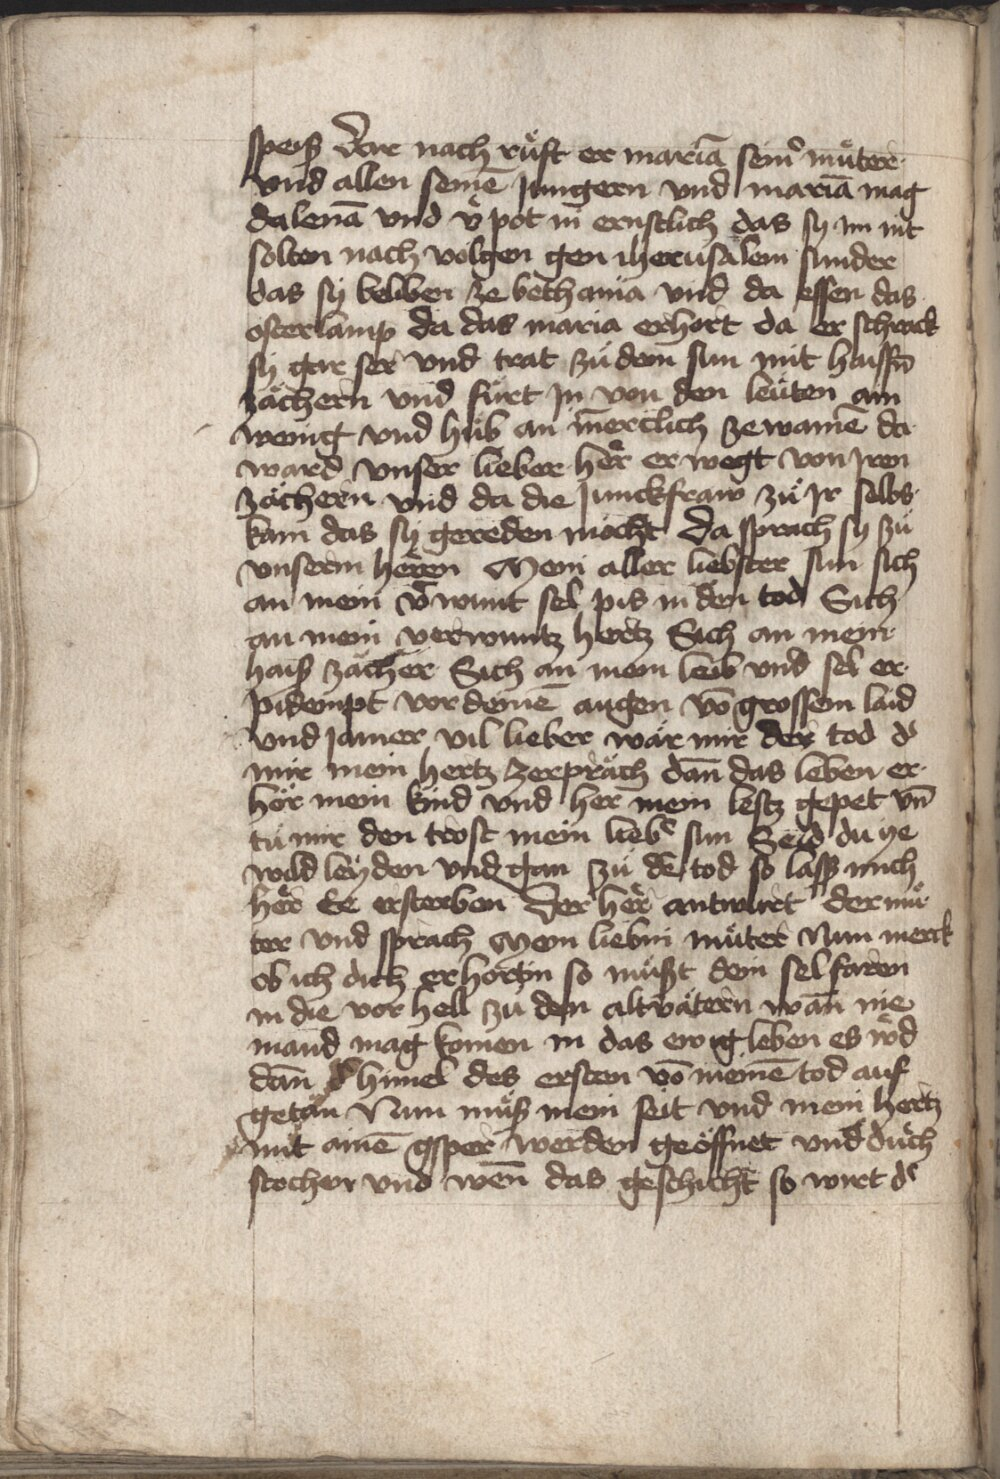 speiß Dar nach rüft er mariā seinˀ müter
vnd allen seinē Jungern vnd mariā mag
dalenā vnd v̾pot in ernstlich das sy im nit
solten nach volgen gen iherusalem sunder
das sy beliben ze bethania vnd da essen das
osterlamp da das maria erhort da er schrack
sy gar ser vnd trat zů dem sun mit haissn̄
zächern vnd fürt jn von den leüten ain
wenig vnd hůb an zewainē da
ward vnser lieber her̾ er wegt von jren
zächern vnd da die Junckfraw zů jr selbs
kam das sy gereden mocht Da sprach sy zů
vnserm herren Mein aller liebster sun sich
an mein v̾wunt sel pis in den tod Sich
an mein verwuntz hertz Sich an mein
haiß zächer Sich an mein leib vnd sel er
pidempt vor deinē augen vō grossem laid
vnd jamer vil lieber wär mir der tod d̾
mir mein hertz zerpräch dan̄ das leben er
hör mein kind vnd her mein lestz gepet vn̄
tů mir den trost mein lieb̾ sun Seid du ye
wild leyden vnd gan zů dē tod so lass mich
her̾ Ee ersterben Der her̾ antwurt der můͦ
ter vnd sprach Mein liebin můter Nun merck
ob ich dich erhortin so můst dein sel faren
in die vor hell zů den altvätern wan̄ nie
mand mag komen in das ewig leben es w̾d
dan̄ d̾ himel des ersten vō meinē tod auf
getan Nun můß mein seit vnd mein hertz
mit ainē gsper werden geöffnet vnd durch
stochen vnd wen̄ das geschicht so wirt d̾